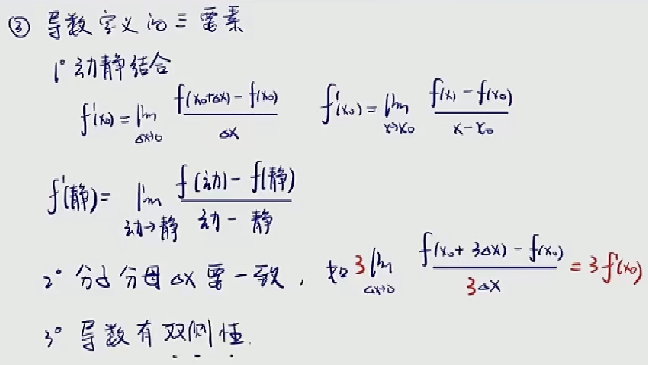 ③ 导数定义的三要素
1° 动静结合
f'(x₀) = lim_{Δx→0} \frac{f(x₀+Δx) - f(x₀)}{Δx}    f'(x₀) = lim_{x→x₀} \frac{f(x) - f(x₀)}{x - x₀}
f'(静) = lim_{动→静} \frac{f(动) - f(静)}{动 - 静}
2° 分子分母Δx要一致, 如 3 lim_{Δx→0} \frac{f(x₀+3Δx) - f(x₀)}{3Δx} = 3f'(x₀)
3° 导数有双侧性.